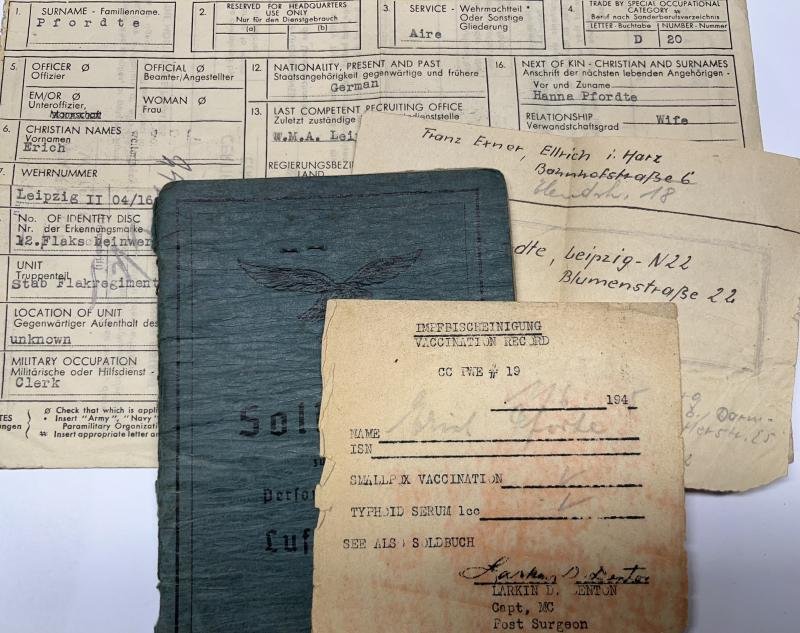 1. SURNAME - Familienname.
Pfordte
2. RESERVED FOR HEADQUARTERS
USE ONLY
Nur für den Dienstgebrauch
(a) (b)
3. SERVICE - Wehrmachtteil *
Oder Sonstige
Gliederung
Aire
4. TRADE BY SPECIAL OCCUPATIONAL
CATEGORY #
Beruf nach Sonderberufsverzeichnis
LETTER - Buchtabe NUMBER - Nummer
D 20
5. OFFICER Ø
Offizier
OFFICIAL Ø
Beamter/Angestellter
EM/OR Ø
Unteroffizier,
Mannschaft
WOMAN Ø
Frau
12. NATIONALITY, PRESENT AND PAST
Staatsangehörigkeit gegenwärtige und frühere
German
16. NEXT OF KIN - CHRISTIAN AND SURNAMES
Anschrift der nächsten lebenden Angehörigen -
Vor und Zuname
Hanna Pfordte
RELATIONSHIP
Verwandschaftsgrad
Wife
6. CHRISTIAN NAMES
Vornamen
Erich
13. LAST COMPETENT RECRUITING OFFICE
Zuletzt zuständige
W.M.A.
REGIERUNGSBEZI
LAND
7. WEHRNUMMER
Leipzig II 04/16
No. OF IDENTITY DISC
Nr. der Erkennungsmarke
12.Flaks
UNIT
Truppenteil
Stab Flakregiment
LOCATION OF UNIT
Gegenwärtiger Aufenthalt des
unknown
MILITARY OCCUPATION
Militärische oder Hilfsdienst -
Clerk
Ø Check that which is appli
* Insert "Army", "Navy"
Paramilitary Organizatio
# Insert appropriate letter an
Franz Exner, Ellrich i. Harz
Bahnhofstraße 6
18
dte, Leipzig-N22
Blumenstraße 22
Sol
Perso
Luf
IMPFBISCHEINIGUNG
VACCINATION RECORD
CC PWE # 19
194
NAME Erich Pforte
ISN
SMALLPOX VACCINATION
TYPHOID SERUM 1cc
SEE ALSO SOLDBUCH
Larkin D. Denton
LARKIN D. DENTON
Capt, MC
Post Surgeon